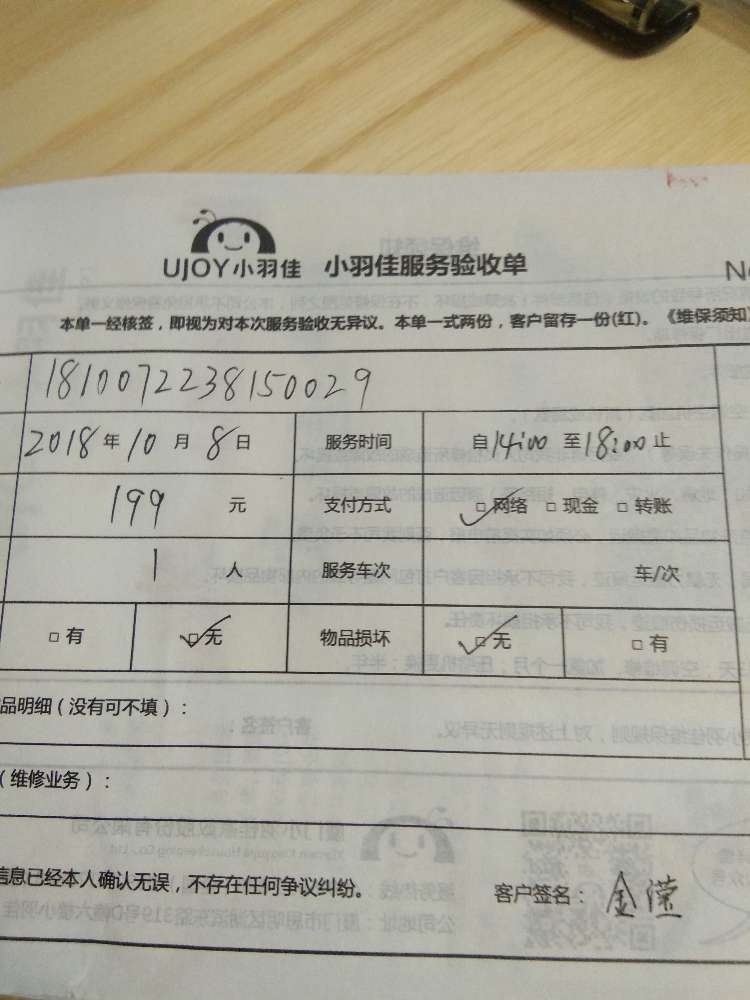 UJOY小羽佳 小羽佳服务验收单 N
本单一经核签，即视为对本次服务验收无异议。本单一式两份，客户留存一份(红)。《维保须知》
1810072238150029
2018年10月8日 服务时间 自14:00至18:00止
199元 支付方式 □网络 □现金 □转账
1人 服务车次 车/次
□有 □无 物品损坏 □无 □有
品明细（没有可不填）：
（维修业务）：
信息已经本人确认无误，不存在任何争议纠纷。 客户签名：金滢